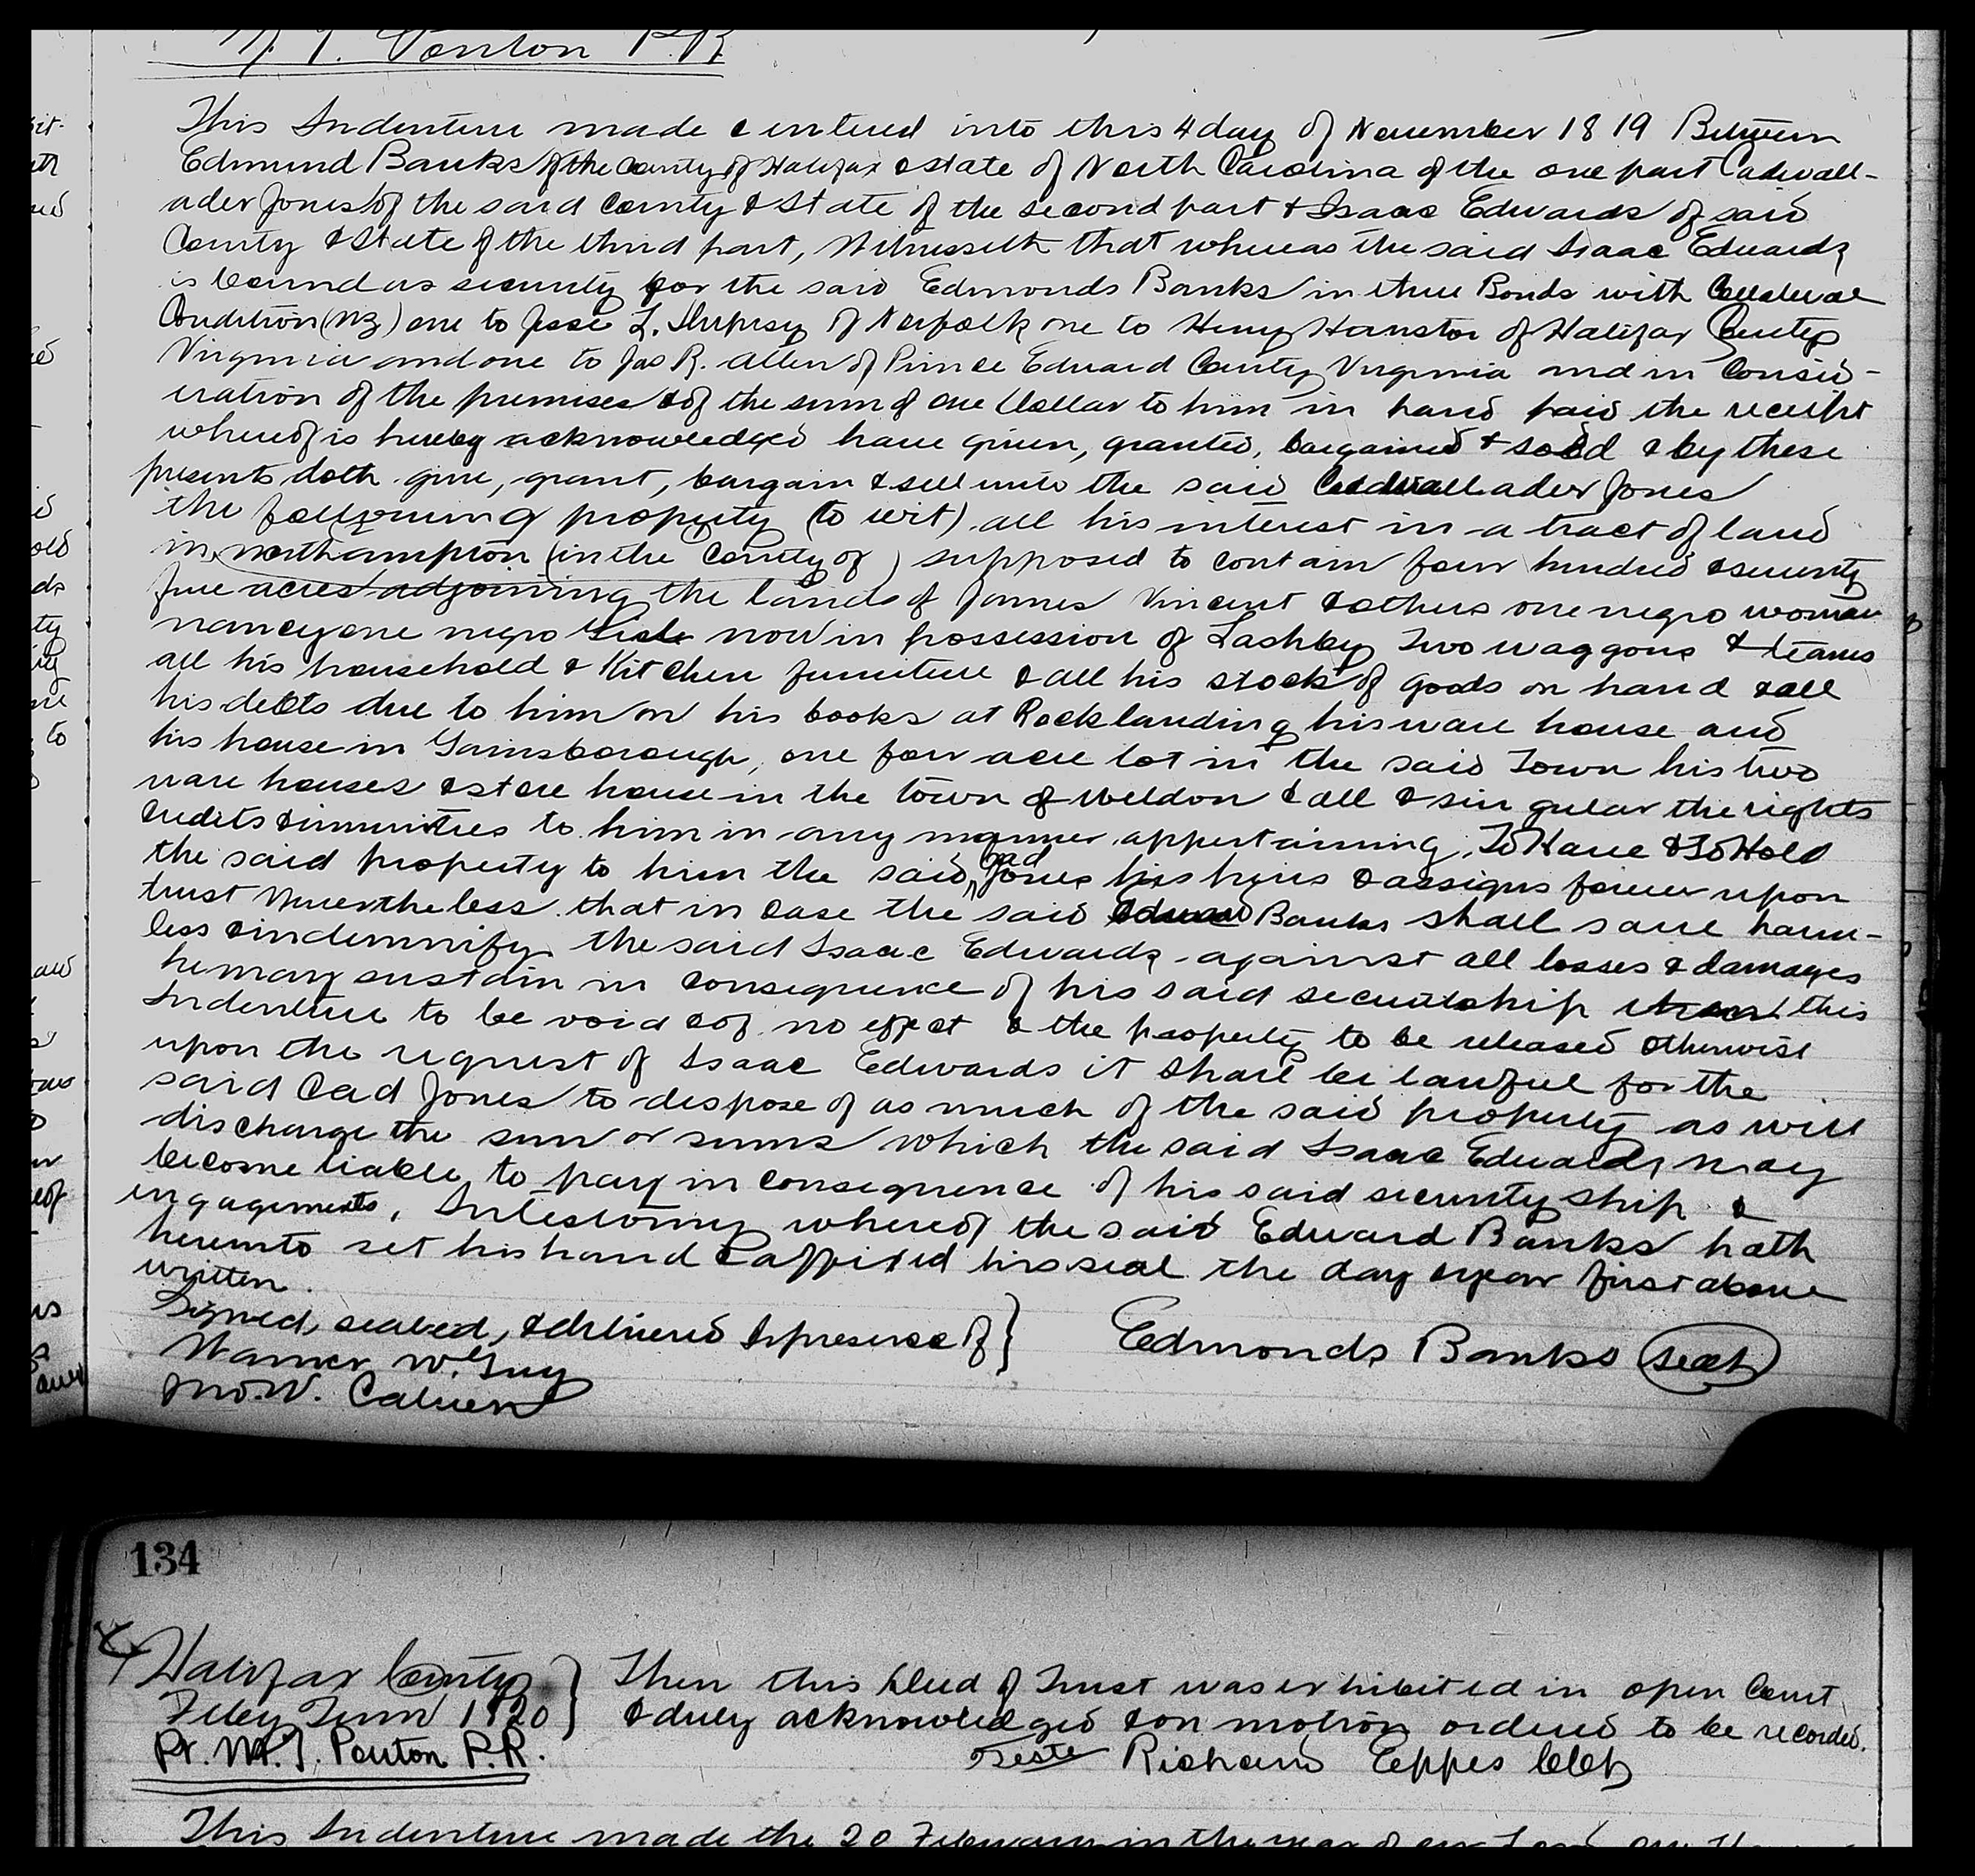 Penton P.R.
This Indenture made & entered into this 4 day of November 1819 Between
Edmund Banks of the County of Halifax & State of North Carolina of the one part Cadwall-
ader Jones of the said County & State of the second part & Isaac Edwards of said
County & State of the third part, Witnesseth that whereas the said Isaac Edwards
is bound as security for the said Edmonds Banks in three Bonds with Collateral
Condition (viz) one to Jesse L. of Norfolk one to Henry of Halifax County
Virginia and one to Jas R. Allen of Prince Edward County Virginia and in Consid-
eration of the premises & of the sum of one Dollar to him in hand paid the receipt
whereof is hereby acknowledged have given, granted, bargained & sold & by these
presents doth give, grant, bargain & sell unto the said Cadwallader Jones
the following property (to wit) all his interest in a tract of land
in northampton (in the County of) supposed to contain four hundred & seventy
five acres adjoining the lands of James Vincent & others one negro woman
nancy one negro now in possession of Lashley Two waggons & teams
all his household & Kitchen furniture & all his stock of goods on hand & all
his debts due to him on his books at Rocklanding his ware house and
his house in Gainsborough, one four acre lot in the said Town his two
ware houses & store house in the town of Weldon & all & singular the rights
Credits & immunities to him in any manner appertaining, To Have & To Hold
the said property to him the said Cad Jones his heirs & assigns forever upon
trust Nevertheless that in case the said Banks shall save harm-
less & indemnify the said Isaac Edwards against all losses & damages
he may sustain in consequence of his said secutship then this
Indenture to be void & of no effect & the property to be released otherwise
upon the request of Isaac Edwards it shall be lawful for the
said Cad Jones to dispose of as much of the said property as will
discharge the sum or sums which the said Isaac Edwards may
become liable to pay in consequence of his said security ship &
engagements, Intestomy whereof the said Edward Banks hath
hereunto set his hand & affixed his seal the day & year first above
written.
Signed, sealed, & delivered in presence of } Edmonds Banks (seal)
Warner W. Guy
Jno. W. Calvert
134
Halifax County } Then this Deed of Trust was exhibited in open Court
Feby Term 1820 } & duly acknowledged & on motion ordered to be recorded.
Pr. M. T. Ponton P.R. Teste Richard Eppes Clk
This Indenture made the 20 February in the year of our Lord one